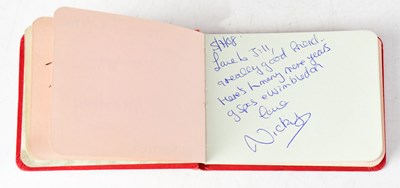 Love to Jill,
a really good friend -
Here's to many more years
of spes & Wimbledon
Love
Nicky